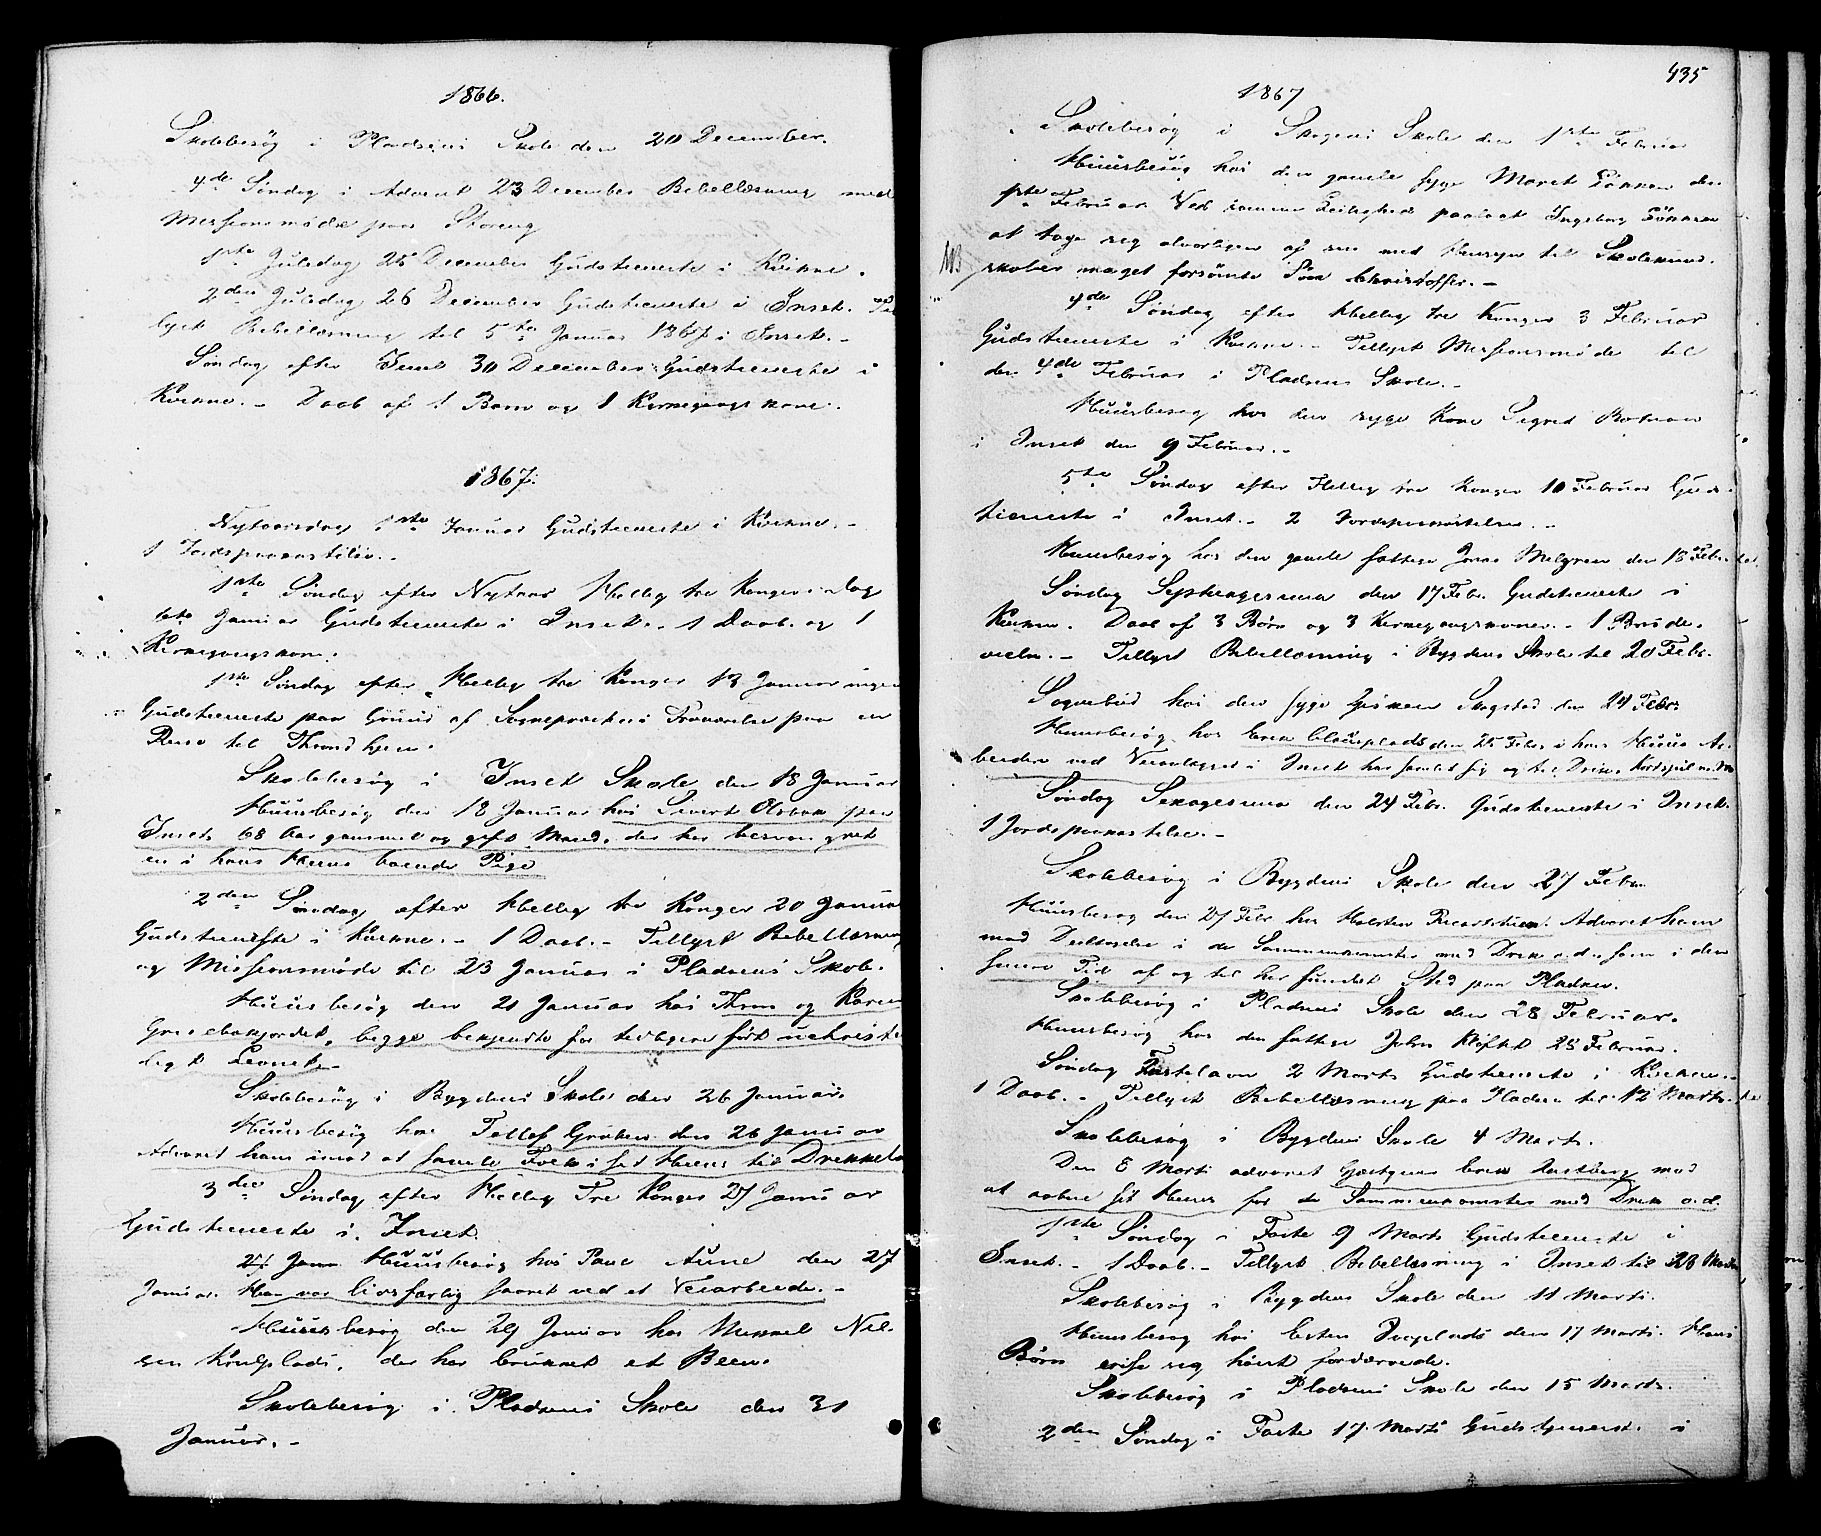 1866.
Skolebesøg i Pladsens Skole den 20 December.
4de Søndag i Advent 23 December Bibellæsning med
Missionsmøde paa Storeng
1ste Juledag 25 December Gudstieneste i Kvikne.
2den Juledag 26 December Gudstieneste i Inset. Til
lyst Bibellæsning til 5te Januar 1867 i Inset.-
Søndag efter Juul 30 December Gudstieneste i
Kvikne.- Daab af 1 Barn og 1 Kirkegangskone.
1867.
Nytaarsdag 1ste Januar Gudstieneste i Kvikne.-
1 Jordspaakastelse.-
1ste Søndag efter Nytaar Hellig tre Kongers Dag
6te Januar Gudstieneste i Inset. 1 Daab og 1
Kirkegangskone.
1ste Søndag efter Hellig tre Konger 13 Januar ingen
Gudstieneste paa Grund af Sognepræstens Fraværelse paa en
Reise til Throndhjem.
Skolebesøg i Inset Skole den 18 Januar
Huusbesøg den 18 Januar hos Sivert paa
Inset, 68 Aar gammel og gift Mand, der har besvangret
en i hans Huus boende Pige
2den Søndag efter Hellig tre Konger 20 Januar
Gudstieneste i Kvikne.- 1 Daab.- Tillyst Bibellæsning
og Missionsmøde til 23 Januar i Pladsens Skole.
Huusbesøg den 21 Januar hos og Karen
begge bekjendte for tidligere ført uchriste
ligt Levnet.-
Skolebesøg i Bygdens Skole den 26 Januar.
Huusbesøg hos Tollef den 26 Januar
Advaret ham imod at samle Folk i sit Huus til
3die Søndag efter Hellig Tre Konger 27 Januar
Gudstieneste i Inset.
27 Janr Huusbesøg hos Aune den 27
Januar. Han var livsfarlig saaret ved et Veiarbeide.-
Huusbesøg den 29 Januar hos Mikkel Nil-
sen der har brukket et Been.
Skolebesøg i Pladsens Skole den 31
Januar.-
435
1867
Skolebesøg i Skogens Skole den 1ste Februar
Huusbesøg hos den gamle syge Marit den
1ste Februar. Ved samme Leilighed paalagt Ingeborg
at tage sig alvorligen af sin med Hensyn til Skolekund-
skaber meget forsømte Søn Christoffer.-
4de Søndag efter Hellig tre Konger 3 Februar
Gudstieneste i Kvikne.- Tillyst Missionsmøde til
den 4de Februar i Pladsens Skole.-
Huusbesøg hos den syge Kone Sigrid
i Inset den 9 Februar.-
5te Søndag efter Hellig tre Konger 10 Februar Guds-
tieneste i Inset.- 2 Jordspaakastelser.-
Huusbesøg hos den gamle fattige Jonas den Febr.
Søndag Septuagesima den 17 Febr. Gudstieneste i
Kvikne. Daab af 3 Børn og 3 Kirkegangskoner.- 1 Brude-
vielse.- Tillyst Bibellæsning i Bygdens Skole til 20 Febr.
Sognebud hos den syge den 24 Febr
Huusbesøg hos den 25 Febr i hvis Huus Ar-
beidere ved Veianlægget i Inset har samlet sig og til Drik, Kortspil
Søndag Sexagesima den 24 Febr. Gudstieneste i Inset.
1 Jordspaakastelse.-
Skolebesøg i Bygdens Skole den 27 Febr
Huusbesøg den 27 Febr hos Halsten Advaret ham
mod Deeltagelse i de Sammenkomster med Drik o.d. som i den
senere Tid af og til har fundet Sted paa Pladsen.
Skolebesøg i Pladsens Skole den 28 Februar.
Huusbesøg hos den fattige John 28 Februar.
Søndag Fastelavn 2 Marts Gudstieneste i Kvikne.-
1 Daab.- Tillyst Bibellæsning paa Pladsen til 12 Marts.
Skolebesøg i Bygdens Skole 4 Marts.
Den 8 Marts advaret mod
at aabne sit Huus for de Sammenkomster med Drik o.d.
1ste Søndag i Faste 9 Marts Gudstieneste i
Inset.- 1 Daab.- Tillyst Bibellæsning i Inset til 28 Marts
Skolebesøg i Bygdens Skole den 11 Marts.
Huusbesøg hos den 17 Marts. Hans
Børn vise sig høist fordærvede.
Skolebesøg i Pladsens Skole den 15 Marts.
2den Søndag i Faste 17 Marts Gudstjeneste i